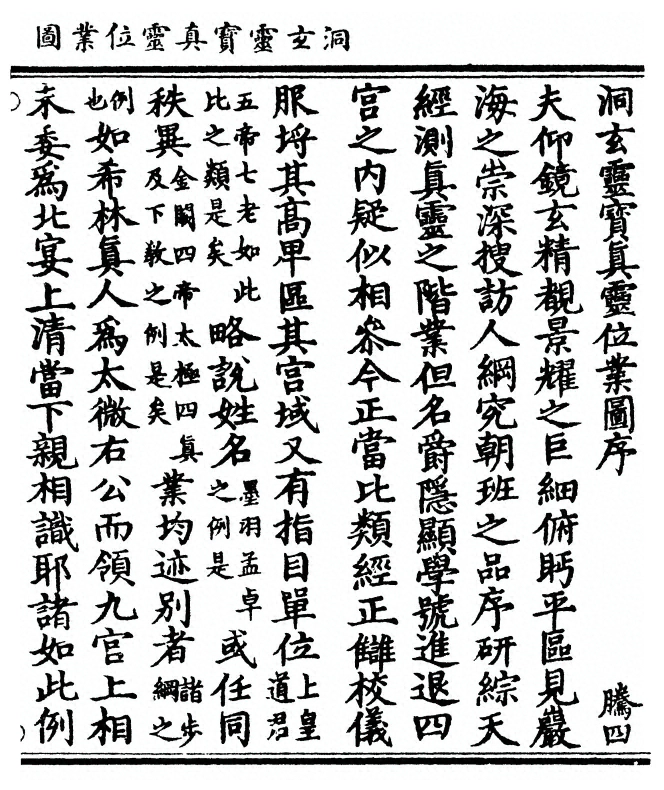 洞玄靈寶真靈位業圖
洞玄靈寶眞靈位業圖序 騰四
夫仰鏡玄精覩景耀之巨細俯眄平區見巖
海之崇深搜訪人綱究朝班之品序研綜天
經測眞靈之階業但名爵隱顯學號進退四
宮之內疑似相參今正當比類經正讎校儀
服埒其高卑區其宮域又有指目單位上皇道君
五帝七老如此比之類是矣略說姓名墨羽孟卓之例是或任同
秩異金闕四帝太極四眞及下教之例是矣業均迹別者諸步綱之
例也如希林眞人爲太微右公而領九宮上相
未委爲北宴上清當下親相識耶諸如此例